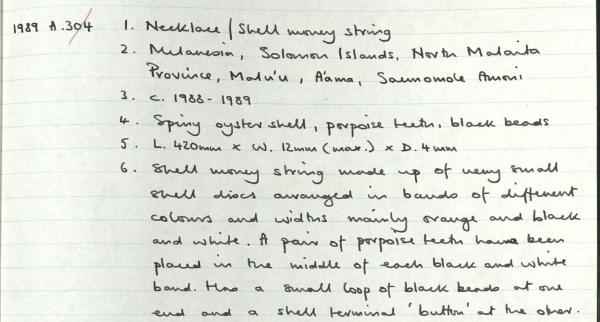 1989 A.304 1. Necklace / Shell money string
2. Melanesia, Solomon Islands, North Malaita
Province, Malu'u, A'ama, Saumomole Amoni
3. c. 1988-1989
4. Spiny oyster shell, porpoise teeth, black beads
5. L. 420mm x W. 12mm (max.) x D. 4mm
6. Shell money string made up of very small
shell discs arranged in bands of different
colours and widths mainly orange and black
and white. A pair of porpoise teeth have been
placed in the middle of each black and white
band. Has a small loop of black beads at one
end and a shell terminal 'button' at the other.